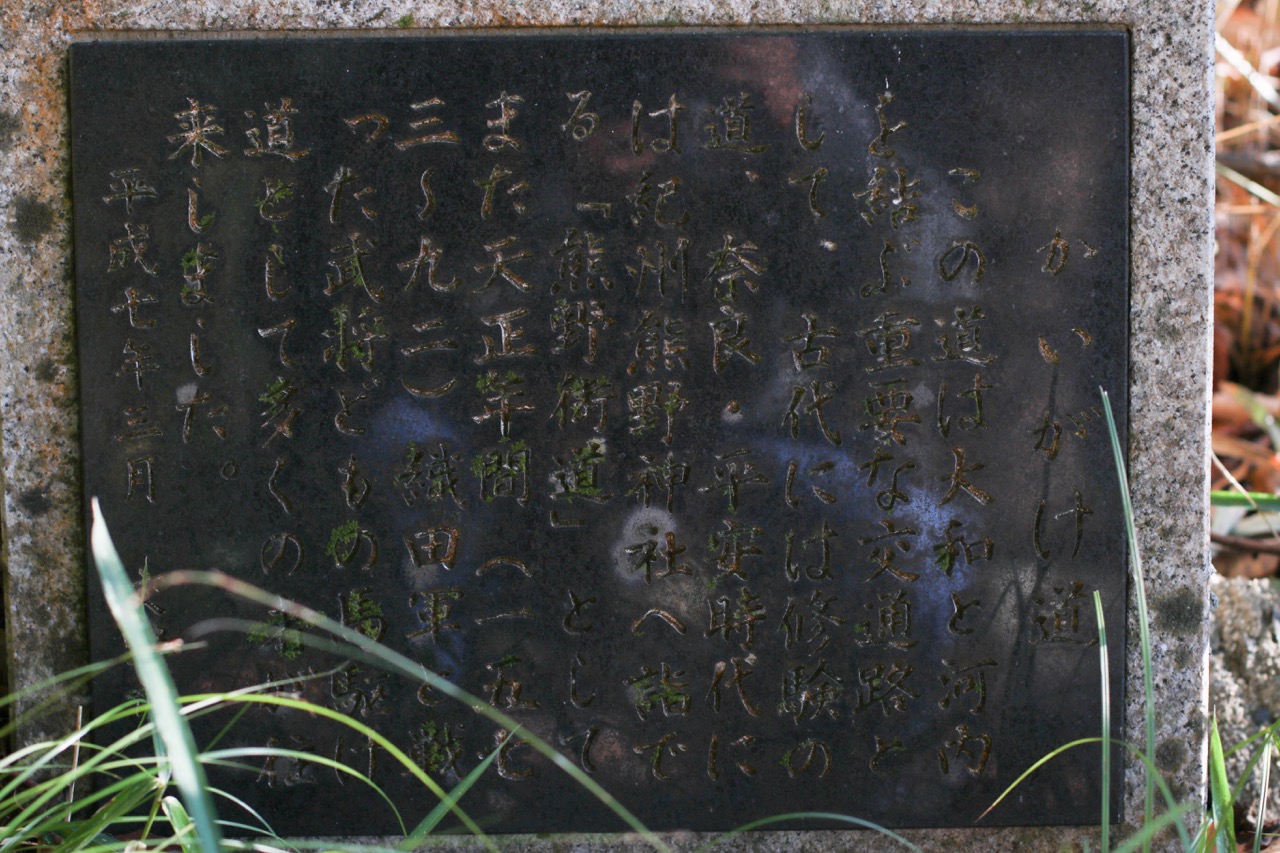 かいがけ道
この道は大和と河内
を結ぶ重要な交通路と
して、古代には修験の
道、奈良・平安時代に
は紀州熊野神社へ詣で
る「熊野街道」として
また天正年間（一五七
三〜九二）織田軍と戦
った武将どもの馬駆け
道として多くの
来しました。
平成七年三月